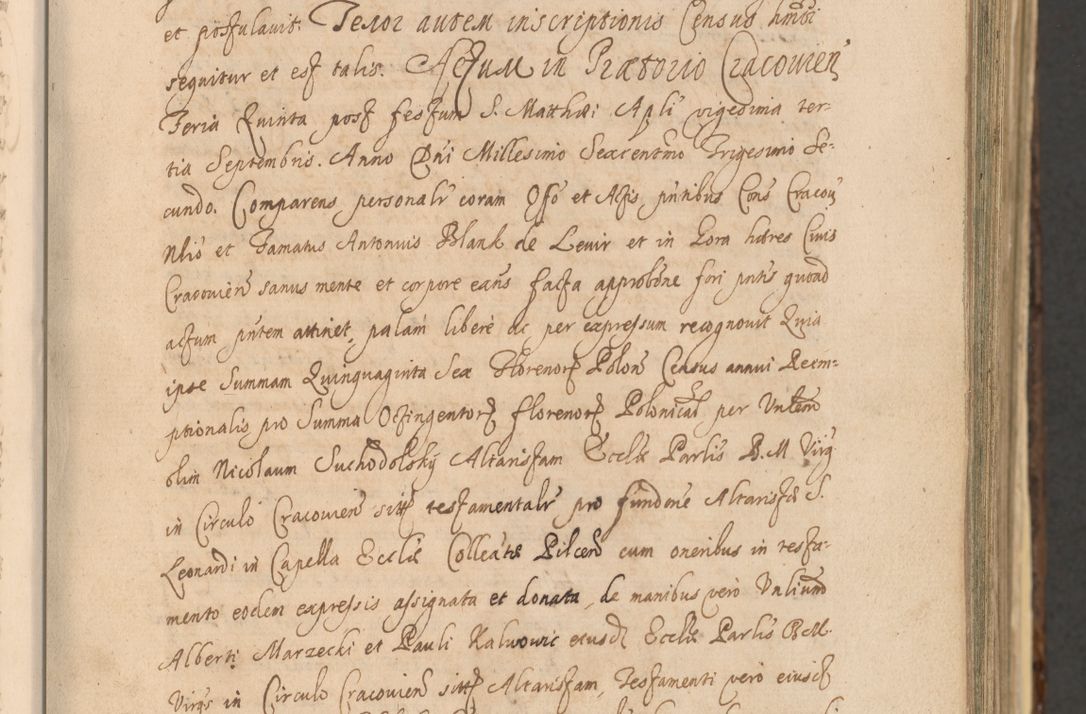 et postulavit. Tenor autem inscriptionis Census hmõi
sequitur et est talis. Actum in Prætorio Cracovien̄
Feria Quinta post festum S. Matthæi Apli vigesima ter-
tia Septembris. Anno Dñi Millesimo Sexcentmo Trigesimo Se-
cundo. Comparens personalr coram Offo et Actis pñtibus Cons Cracov
Nlis et Famatus Antonius Blank de Levir et in Gora hæres Civis
Cracovien̄ sanus mente et corpore eañs facta approbñe fori pñtis quoad
actum pñtem attinet, palam libere ac per expressum recognovit Quia
ipse Summam Quinquaginta Sex Florenorȝ Polon̄ Census annui Reem-
ptionalis pro Summa Octingentorȝ florenorȝ Polonicalȝ per Vnlem
olim Nicolaum Suchodolsky Altaristam Ecclæ Parlis B. M Virg
in Circulo Cracovien̄ sitȝ testamentalr pro fundne Altaristæ S.
Leonardi in Capella Ecclæ Colleatæ Pilcen̄ cum oneribus in testa-
mento eodem expressis assignata et donata, de manibus vero Vnlium
Alberti Marzecki et Pauli Kalwowic eiusdȝ Ecclæ Parlis B. M.
Virgs in Circulo Cracovien̄ sitȝ Altaristam, Testamenti vero eiusdȝ